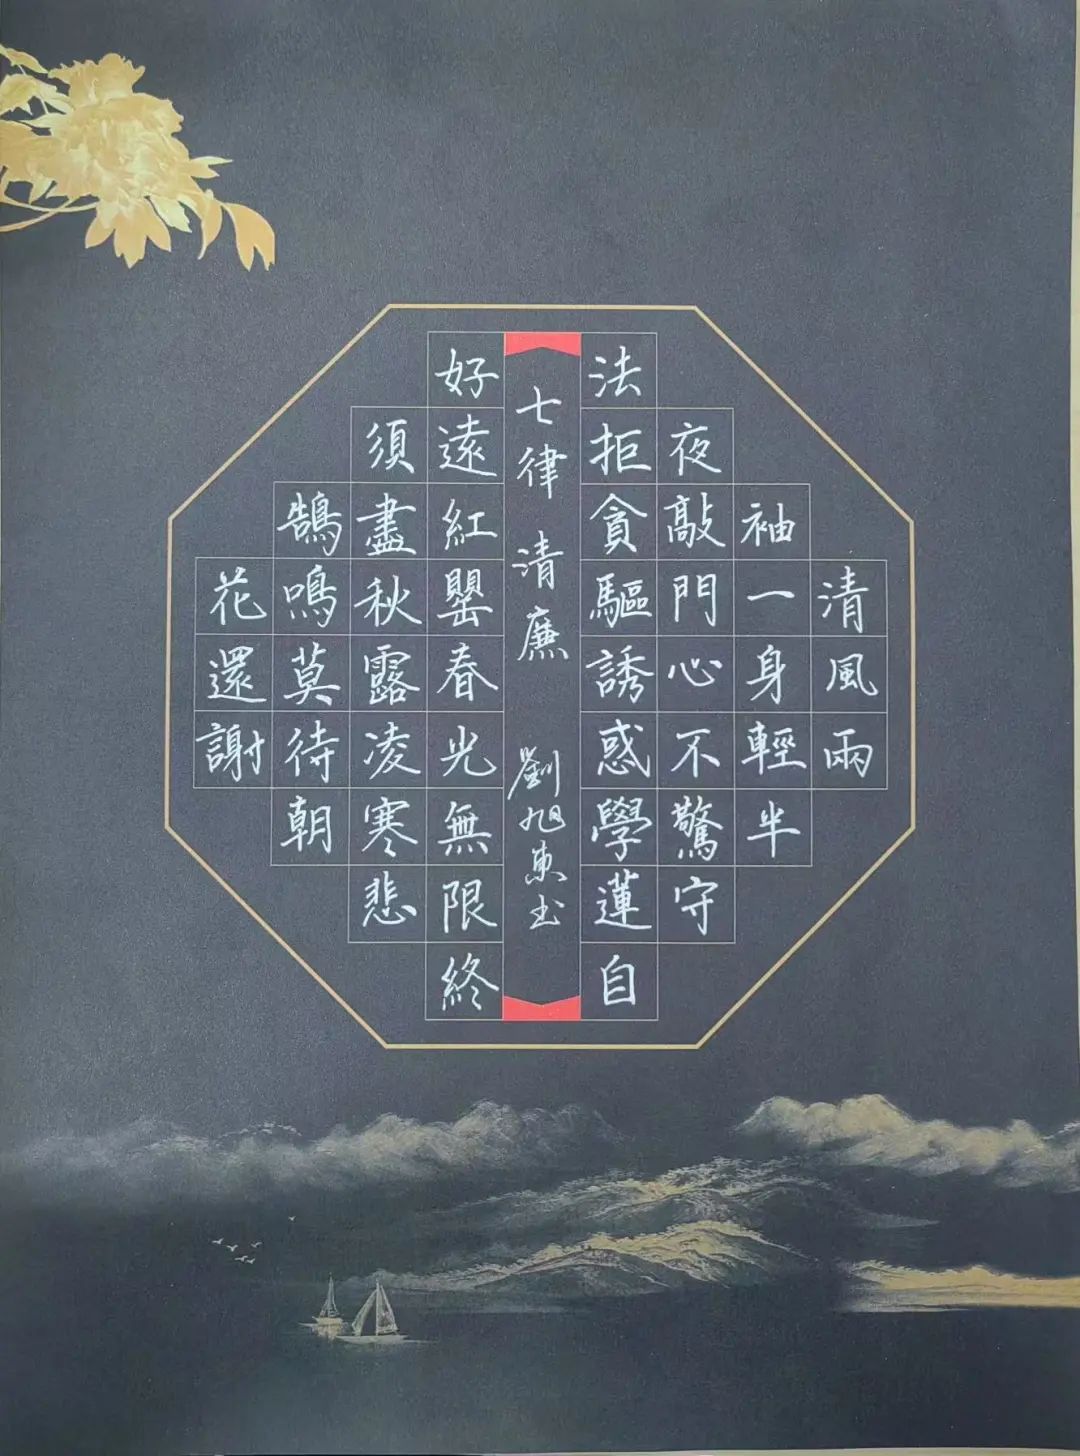 清風兩
袖一身輕半
夜敲門心不驚守
法拒貪驅誘惑學蓮自
七律 清廉 劉旭東書
好遠紅罌春光無限終
須盡秋露凌寒悲
鵠鳴莫待朝
花還謝